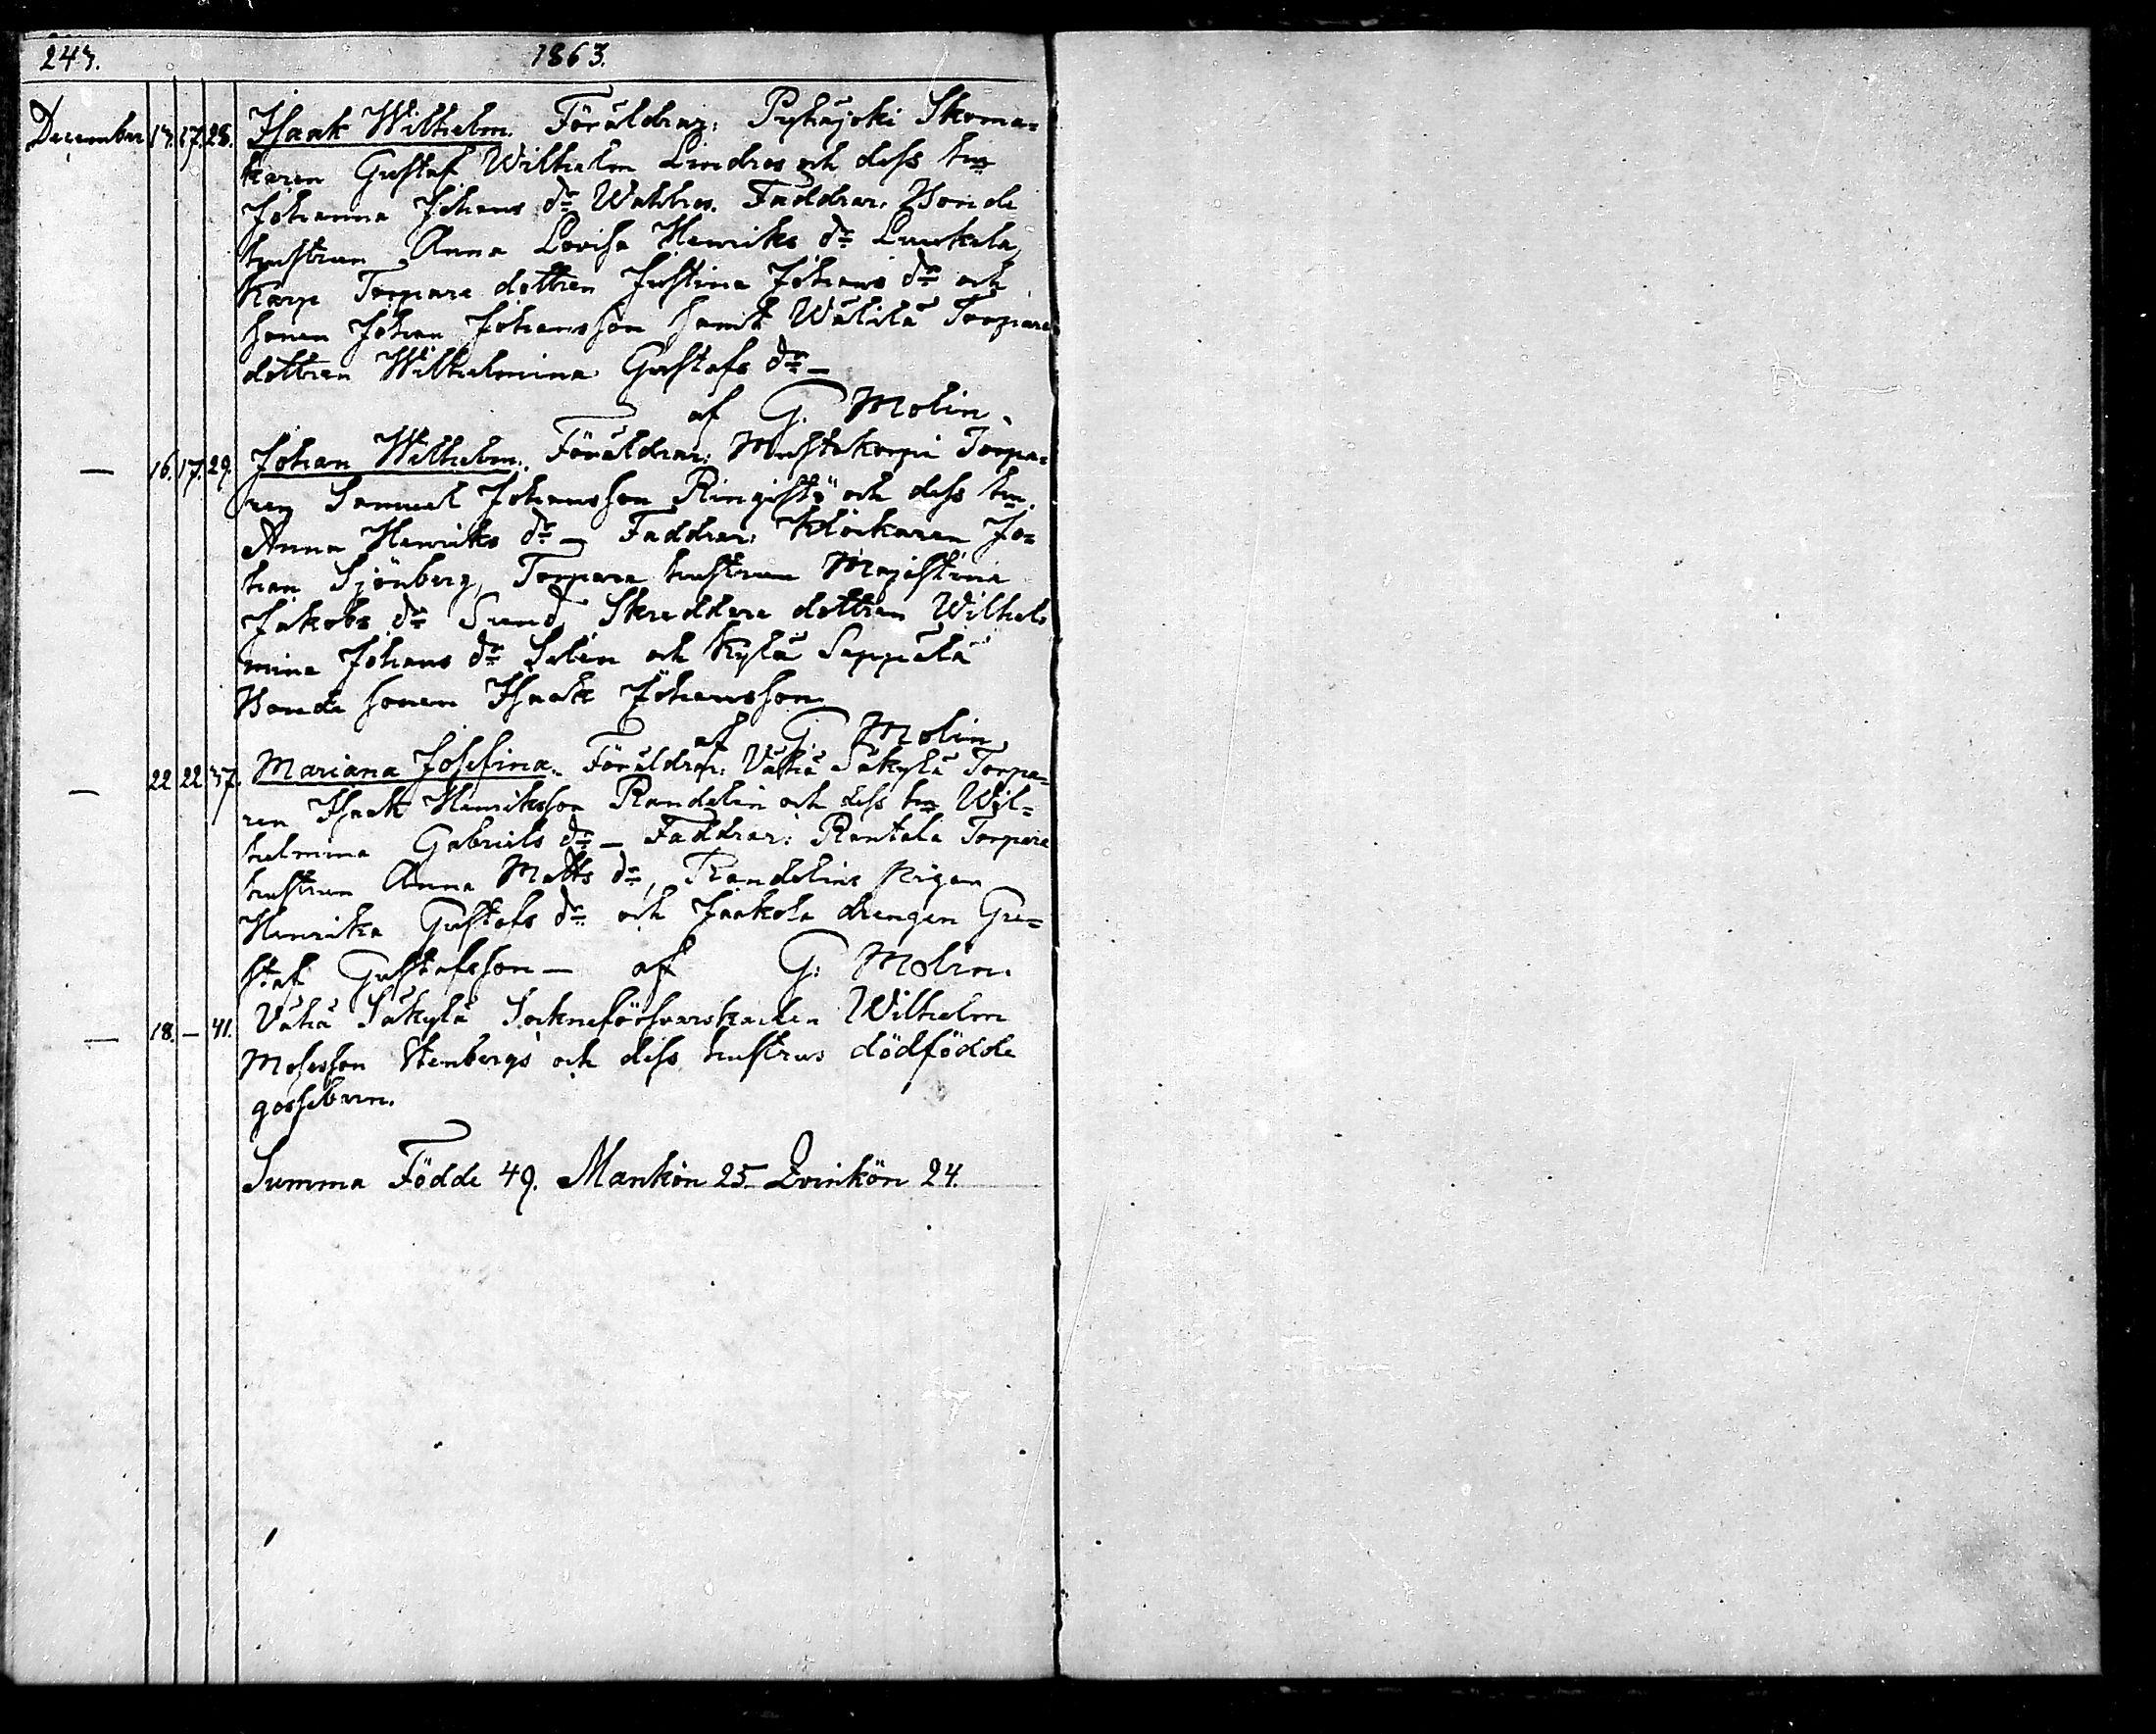 243. 1863.
December 13. 17. 28. Isaak Wilhelm. Föräldrar: Pyhäjoki Skoma=
karen Gustaf Wilhelm Lindros och dess hu
Johanna Johans dr Wahlros. Faddrar: Bonde
hustrun Anna Lovisa Henriks dr
Karp Torpare dottren Justina Johans dr och
sonen Johan Johansson samt Wälilä Torpare
dottren Wilhelmina Gustafs dr —
af G. Molin.
— 16. 17. 29. Johan Wilhelm. Föräldrar: Mustakorpi Torpa=
ren Samuel Johansson Ringistö och dess hu
Anna Henriks dr — Faddrar: Klockaren Jo=
han Sjönberg, Torpare hustrun
Jakobs dr Sund, Skreddare dottren Wilhel=
mina Johans dr Selin och Kylä Seppälä
Bonde sonen Isaak Johansson
af G. Molin
— 22 22 37. Mariana Josefina. Föräldrar: Vähä Säkylä Torpa=
ren Isaak Henriksson Randelin och dess hu Wil=
helmina Gabriels dr — Faddrar: Rantala Torpare
hustrun Anna Matts dr, Randelins Pigan
Henrika Gustafs dr och Jaakola drengen Gu=
staf Gustafsson — af G. Molin.
— 18. — 41. Vähä Säkylä Sockneförsvarskarlen Wilhelm
Mosesson Stenbergs och dess hustrus dödfödde
gossebarn.
Summa Födde 49. Mankön 25 Qvinkön 24.